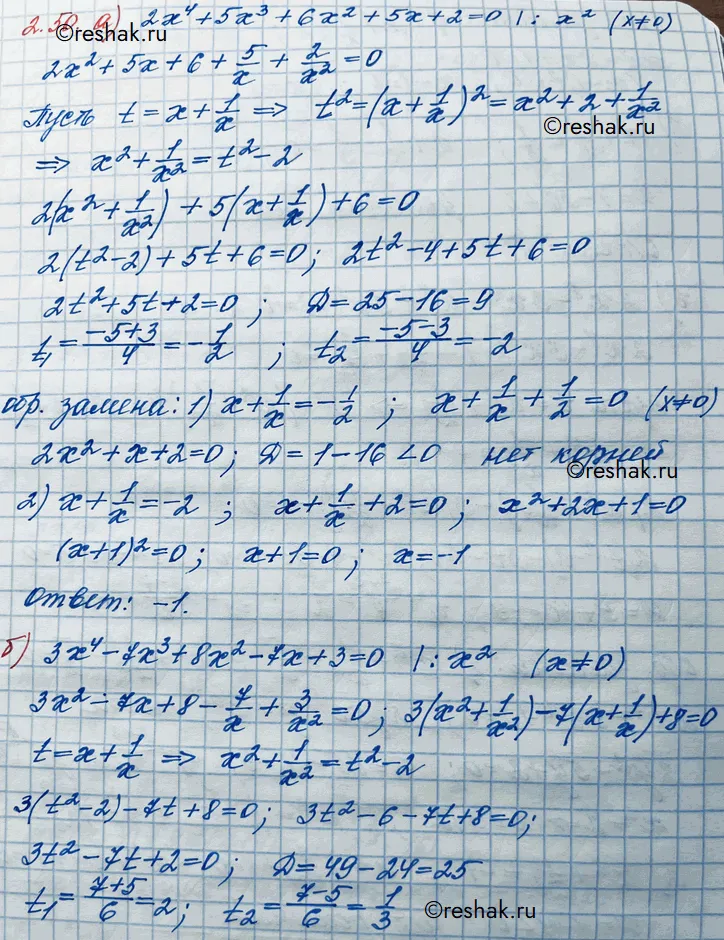 2.50 а) 2x⁴+5x³+6x²+5x+2=0 |: x² (x≠0)
2x²+5x+6+5/x+2/x²=0
Пусть t=x+1/x ⇒ t²=(x+1/x)²=x²+2+1/x²
©reshak.ru
⇒ x²+1/x²=t²-2
2(x²+1/x²)+5(x+1/x)+6=0
2(t²-2)+5t+6=0; 2t²-4+5t+6=0
2t²+5t+2=0; Д=25-16=9
t₁=(-5+3)/4=-1/2; t₂=(-5-3)/4=-2
обр. замена: 1) x+1/x=-1/2; x+1/x+1/2=0 (x≠0)
2x²+x+2=0; Д=1-16<0 нет корней
©reshak.ru
2) x+1/x=-2; x+1/x+2=0; x²+2x+1=0
(x+1)²=0; x+1=0; x=-1
Ответ: -1.
б) 3x⁴-7x³+8x²-7x+3=0 |: x² (x≠0)
3x²-7x+8-7/x+3/x²=0; 3(x²+1/x²)-7(x+1/x)+8=0
t=x+1/x ⇒ x²+1/x²=t²-2
3(t²-2)-7t+8=0; 3t²-6-7t+8=0;
3t²-7t+2=0; Д=49-24=25
t₁=(7+5)/6=2; t₂=(7-5)/6=1/3
©reshak.ru